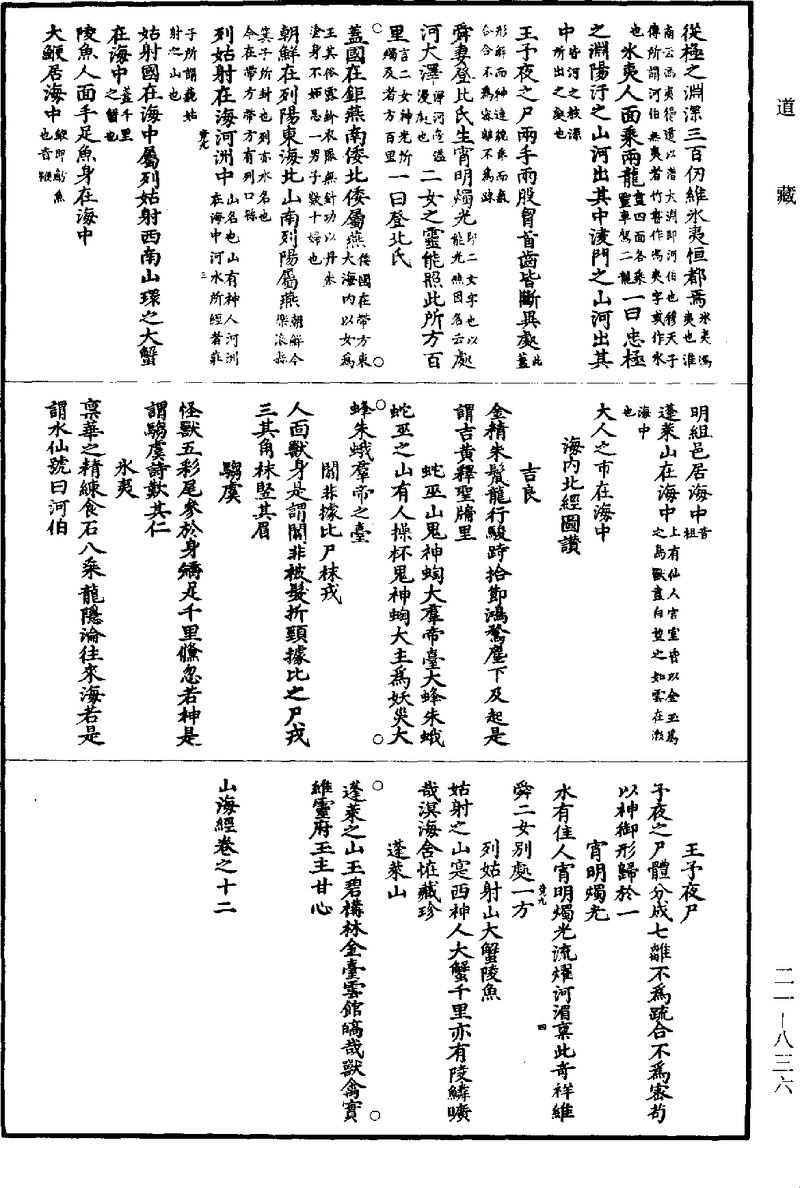 道藏
從極之淵深三百仞維氷夷恒都焉氷夷馮夷也淮
南云馮夷得道以潛大淵即河伯也穆天子
傳所謂河伯無夷者竹書作馮夷字或作氷
也氷夷人面乗兩龍畫四面各乗靈車駕二龍一曰忠極
之淵陽汙之山河出其中淩門之山河出其
中皆河之枝源所出之處也
王子夜之尸兩手兩股胷首齒皆斷異處此蓋
形解而神連貌乖而氣
合合不為密離不為疏
舜妻登比氏生宵明燭光即二女字也以能光照因名云處
河大澤澤河邊溢漫處也二女之靈能照此所方百
里言二女神光所燭及者方百里一曰登北氏
蓋國在鉅燕南倭北倭屬燕倭國在帶方東大海内以女為
王其俗露紒衣服無針功以丹朱
塗身不妬忌一男子數十婦也
朝鮮在列陽東海北山南列陽屬燕朝鮮今樂浪縣
箕子所封也列亦水名也
今在帶方帶方有列口縣
列姑射在海河洲中山名也山有神人河洲在海中河水所經者莊
子所謂藐姑
射之山也
姑射國在海中屬列姑射西南山環之大蟹
在海中蓋千里之蟹也
陵魚人面手足魚身在海中
大鯾居海中鯾即魴魚也音鞭
明組邑居海中音祖
蓬萊山在海中上有仙人宮室皆以金玉為之鳥獸盡白望之如雲在渤
海中
也
大人之市在海中
海内北經圖讃
吉良
金精朱鬣龍行駿跱拾節鴻騖塵下及起是
謂吉黃釋聖牖里
蛇巫山鬼神蜪犬羣帝臺大蜂朱蛾
蛇巫之山有人操杯鬼神蜪犬主為妖災大
蜂朱蛾羣帝之臺
闒非據比尸袜戎
人面獸身是謂闒非被髮折頸據比之尸戎
三其角袜竪其眉
騶虞
怪獸五彩尾參於身矯足千里儵忽若神是
謂騶虞詩歎其仁
氷夷
禀華之精練食石八乗龍隱淪往來海若是
謂水仙號曰河伯
王予夜尸
子夜之尸體分成七離不為疏合不為密苟
以神御形歸於一
宵明燭光
水有佳人宵明燭光流燿河湄禀此奇祥維
舜二女別處一方
列姑射山大蟹陵魚
姑射之山寔西神人大蟹千里亦有陵鱗曠
哉溟海含恠藏珍
蓬萊山
蓬萊之山玉碧構林金臺雲館皜哉獸禽實
維靈府玉主甘心
山海經卷之十二
二一-八三六